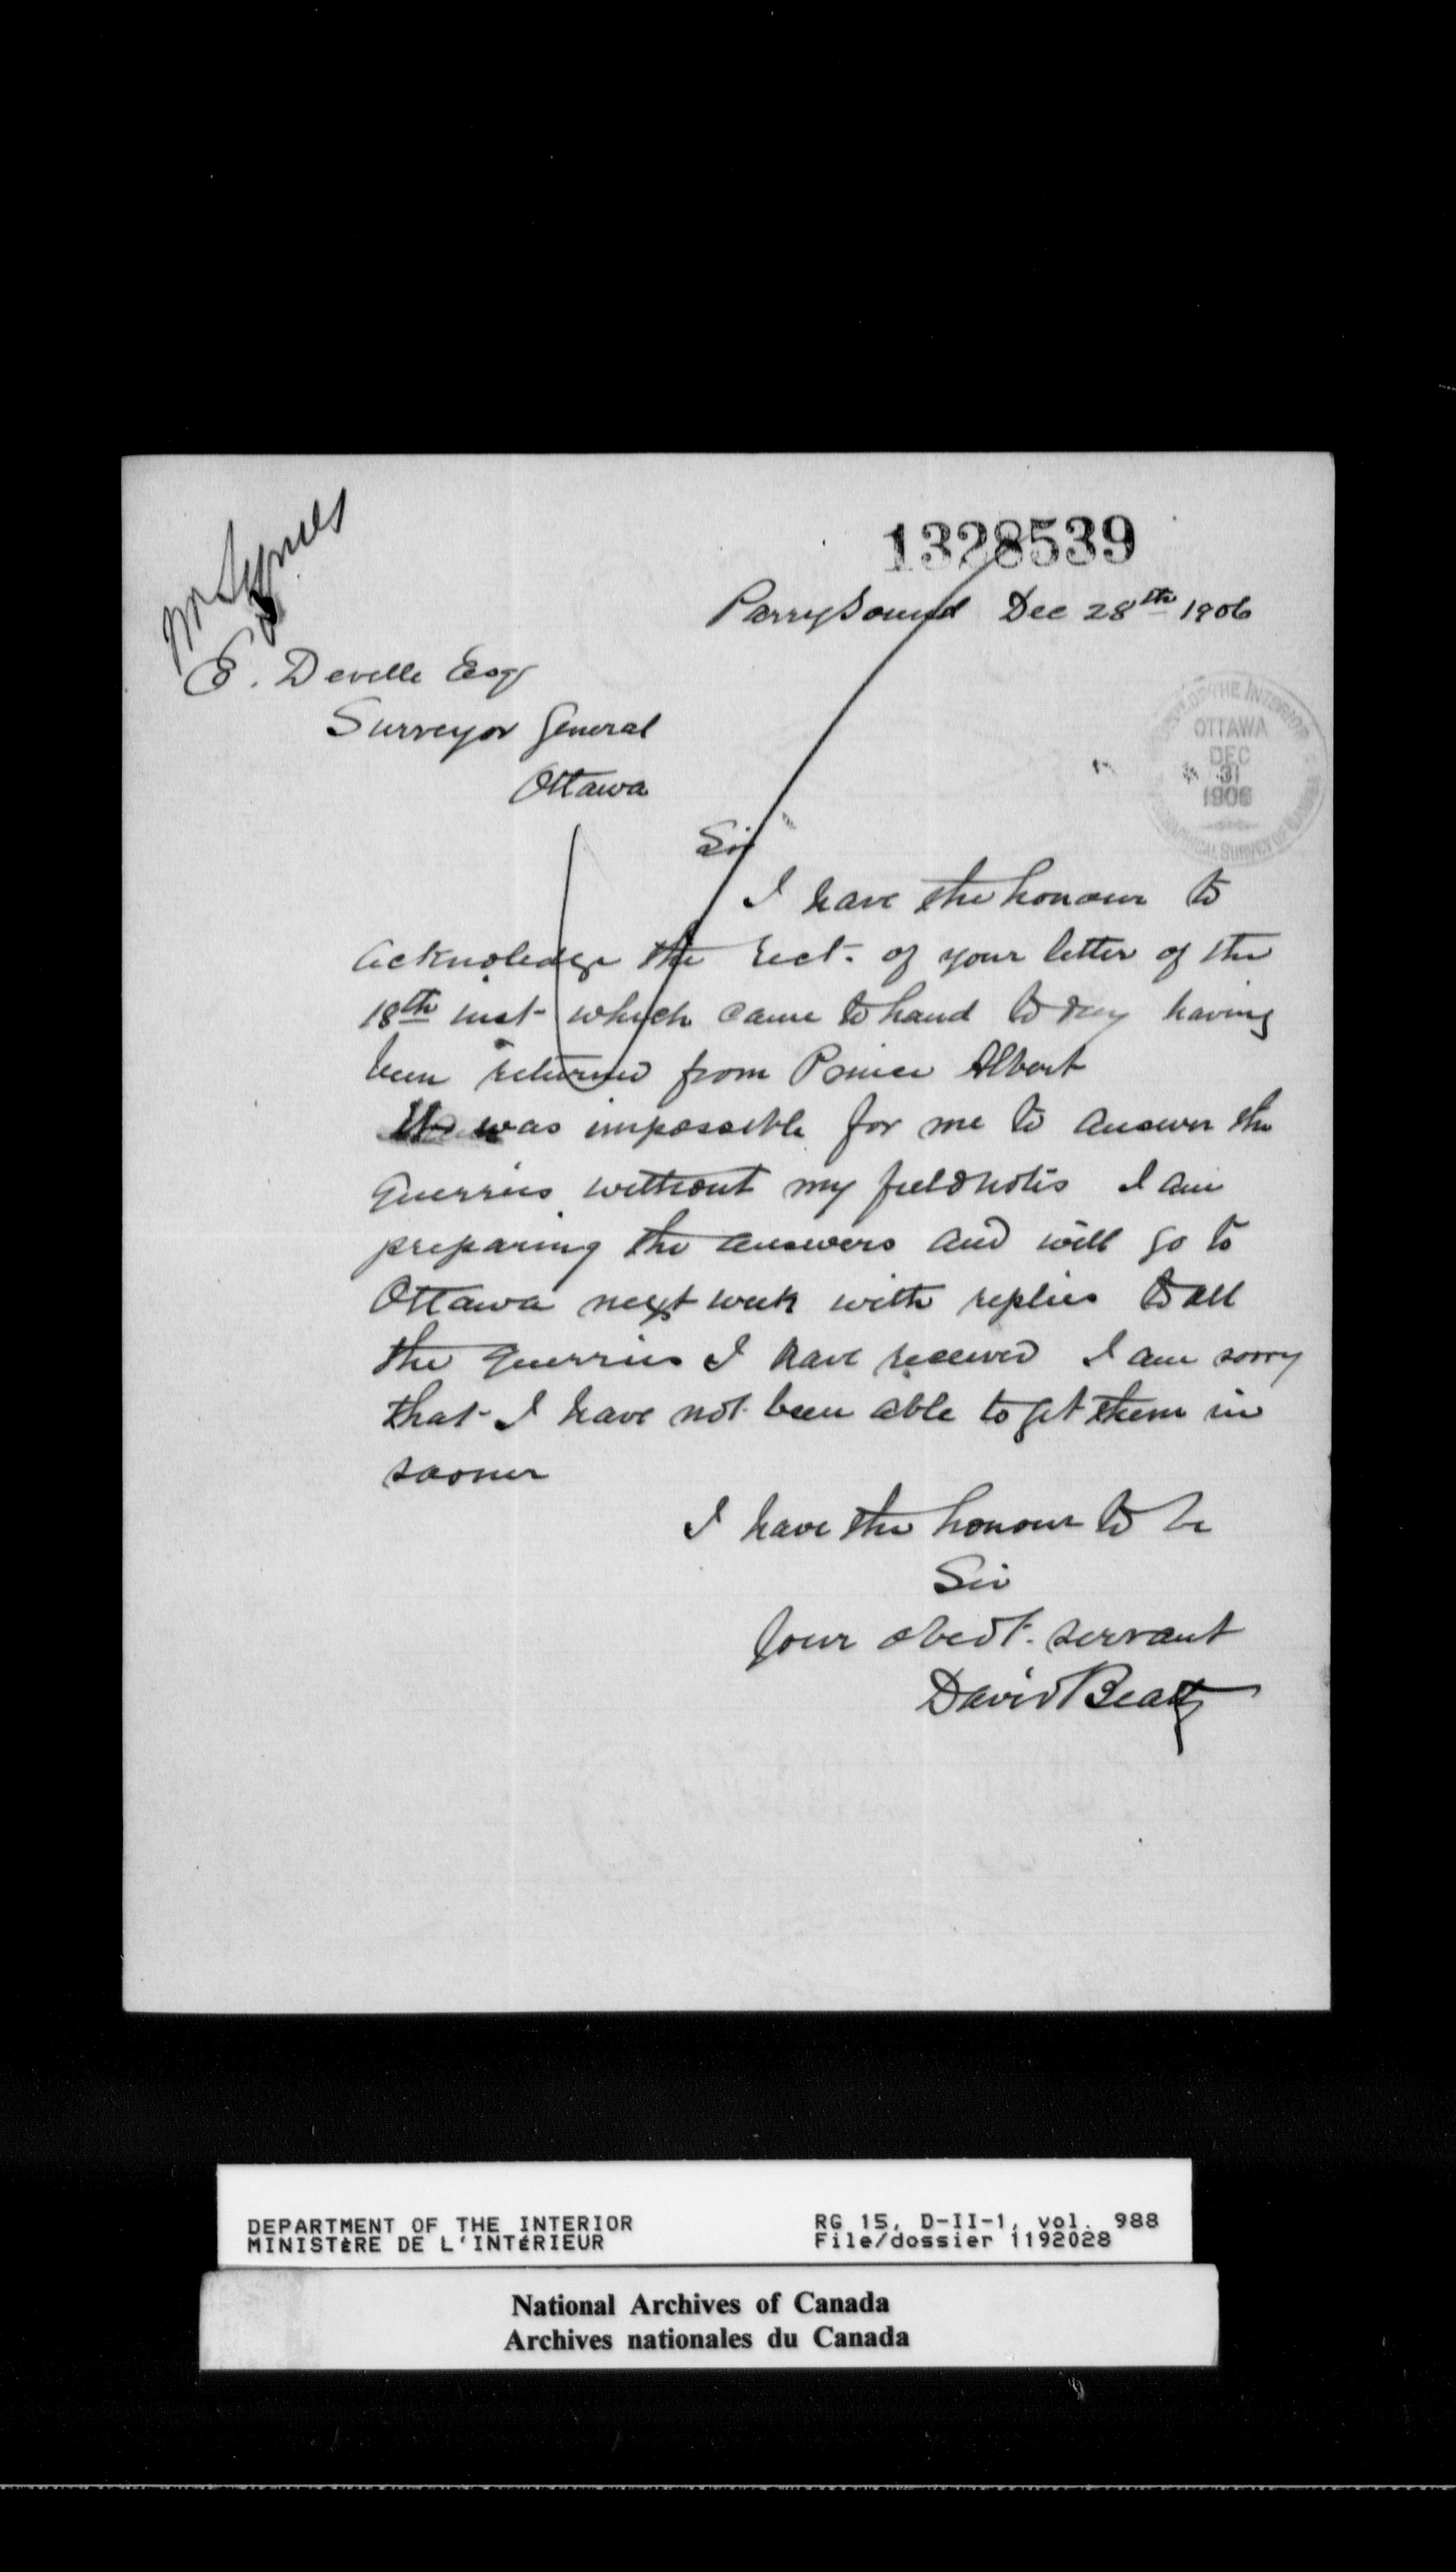 1328539
Parry Sound Dec 28th 1906
E. Deville Esqr
Surveyor General
Ottawa
DEPT OF THE INTERIOR
OTTAWA
DEC
31
1906
TOPOGRAPHICAL SURVEY OF CANADA
Sir
I have the honour to
acknoledge the rect. of your letter of the
18th inst which came to hand to day having
been returned from Prince Albert
It was impossible for me to answer the
querries without my fieldnotes I am
preparing the answers and will go to
Ottawa next week with replies to all
the querries I have received I am sorry
that I have not been able to get them in
sooner
I have the honour to be
Sir
Your obedt. servant
David Beatty
DEPARTMENT OF THE INTERIOR RG 15, D-II-1, vol. 988
MINISTÈRE DE L'INTÉRIEUR File/dossier 1192028
National Archives of Canada
Archives nationales du Canada